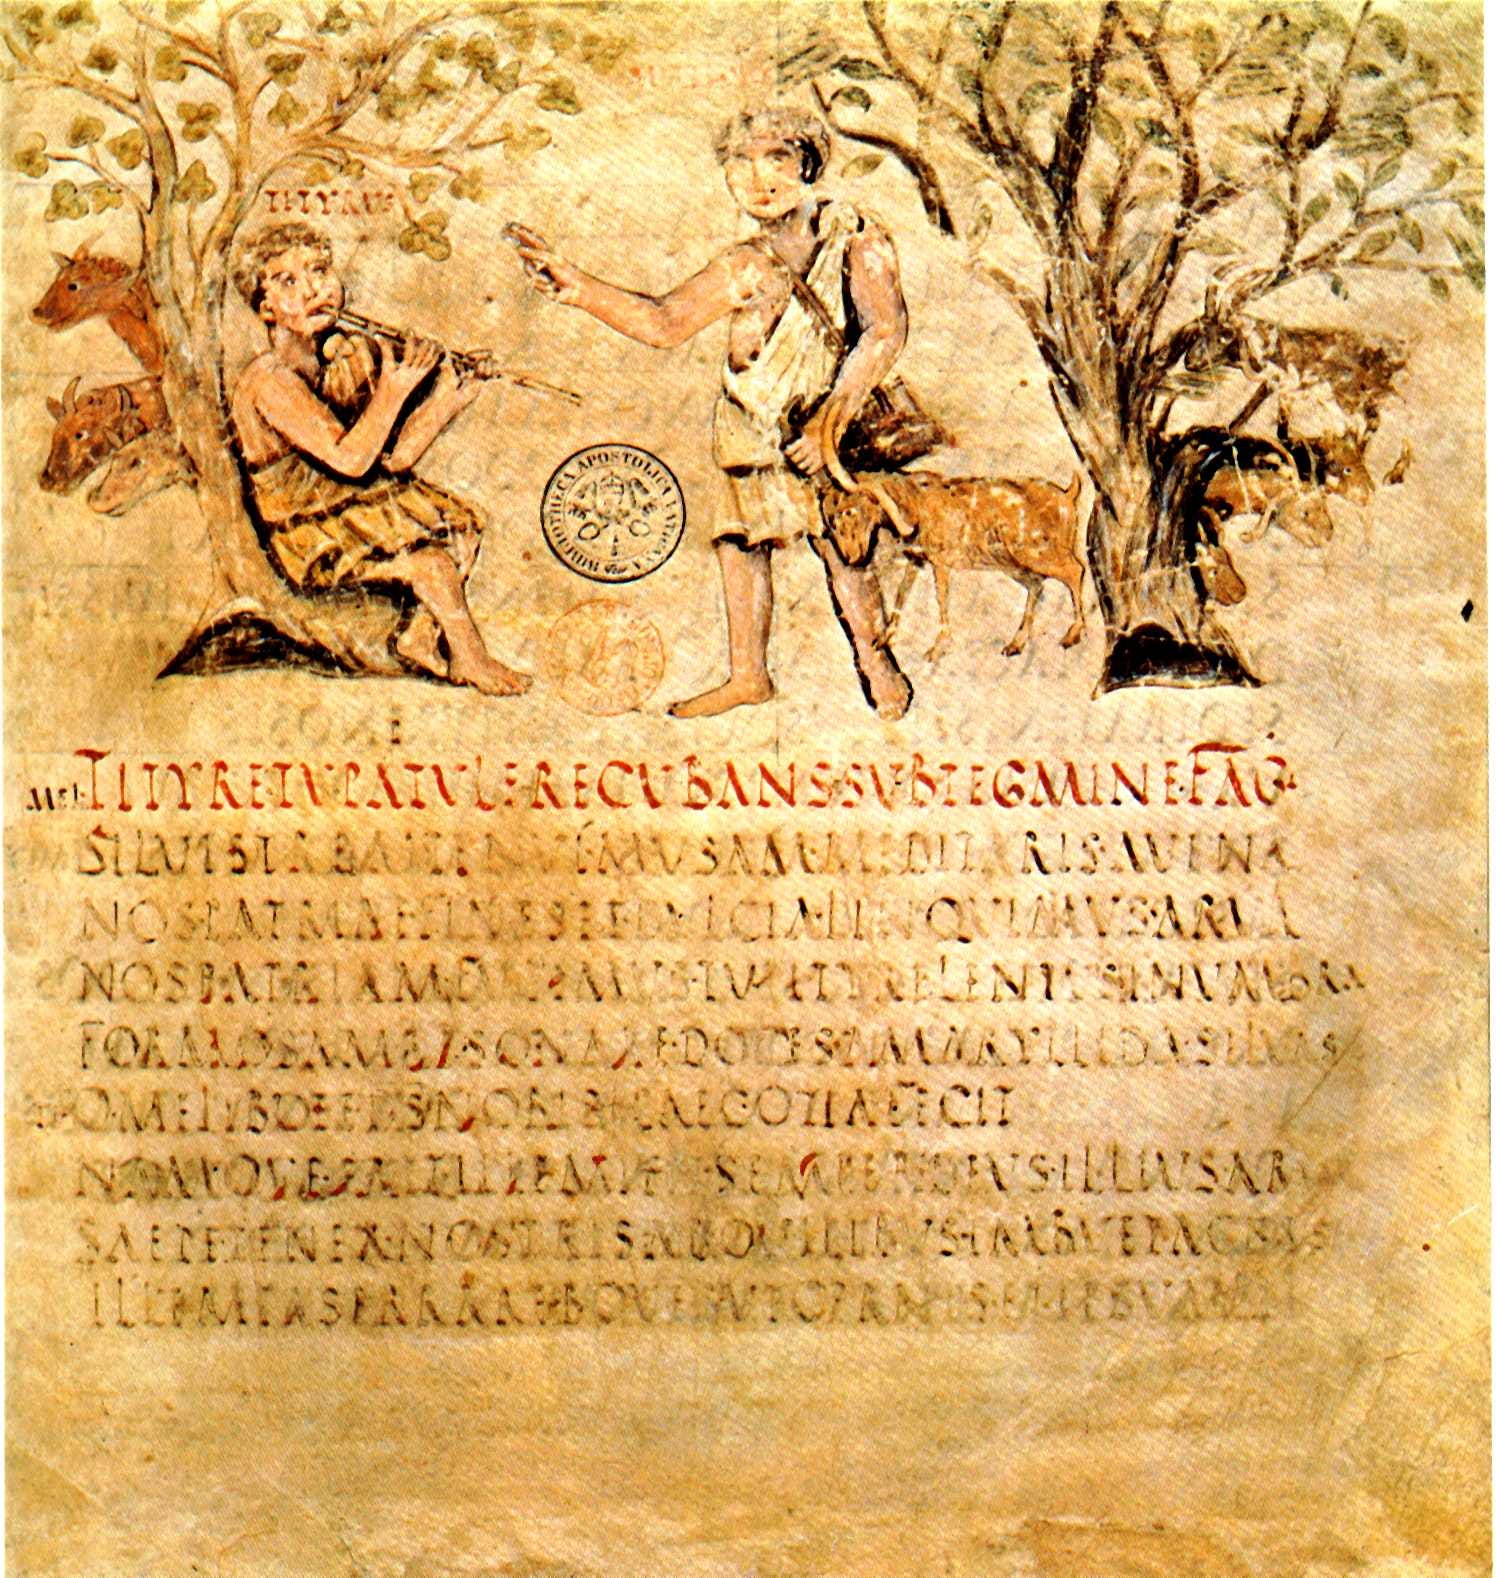 TITYRVS
BIBLIOTHECA APOSTOLICA VATICANA
MEL·TITYRE·TV·PATVLE·RECVBANS·SVB·TEGMINE·FAGI
SILVESTREM·TENVI·MVSAM·MEDITARIS·AVENA
NOS·PATRIAE·FINES·ET·DVLCIA·LINQVIMVS·ARVA
NOS·PATRIAM·FVGIMVS·TV·TITYRE·LENTVS·IN·VMBRA
FORMOSAM·RESONARE·DOCES·AMARYLLIDA·SILVAS
O·MELIBOEE·DEVS·NOBIS·HAEC·OTIA·FECIT
NAMQVE·ERIT·ILLE·MIHI·SEMPER·DEVS·ILLIVS·ARAM
SAEPE·TENER·NOSTRIS·AB·OVILIBVS·IMBVET·AGNVS
ILLE·MEAS·ERRARE·BOVES·VT·CERNIS·ET·IPSVM